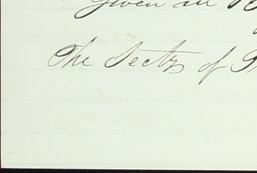 Given in
The Secty of